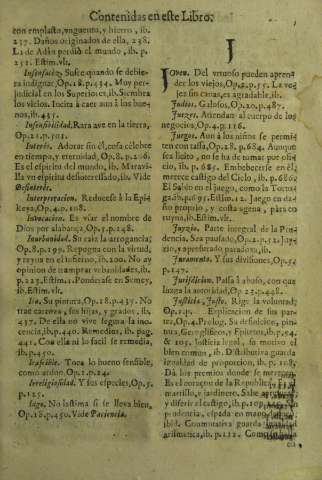 Contenidas en este Libro.
con emplasto, vnguento, y hierro, ib.
237. Daños originados de ella, 238.
La de Adan perdiò el mundo, ib. p.
231. Estim. vlt.
Insensatèz. Susce quando se debie-
ra indignar, Op.18. p.434. Muy per-
judicial en los Superiores, ib. Siembra
los vicios. Incita à caer aun à los bue-
nos, ib. 435.
Insensibilidad. Rara ave en la tierra,
Op.21. p.
Interès. Adorar sin èl, cosa cèlebre
en tiempo, y eternidad, Op.8. p.216.
Es el espiritu del mundo, ib. Maravi-
lla vn espiritu desinteressado, ib. Vide
Desinterès.
Interpretacion. Reducese à la Epi-
Keya, Op.4. p.118.
Invocacion. Es vsar el nombre de
Dios por alabança, Op.5. p.148.
Inurbanidad. Su raiz la arrogancia;
Op.8. p.199. Repugna con la virtud,
y reyna en el infierno, ib. 200. No ay
opinion de tramar vrbanidades, ib.
p.223. Estim. 11. Pondèrase en Semey,
ib. Estim. vlt.
Ira. Su pintura, Op.18. p.435. No
trae
437. De ella no vive segura la ino-
cencia, ib. p.440. Remedios, ib. pag.
441. Con ella ni lo facil se remedia,
ib. p.450.
Irascible. Toca lo bueno sensible,
como arduo. Op.1. p.24.
Irreligiosidad. Y sus especies, Op.5.
p.125.
Iugo. No lastima si se lleva bien,
Op.18. p.450. Vide Paciencia.
J
Joven. Del virtuoso pueden apren-
der los viejos, Op.2. p.55. La ve-
jez sin canas, es agradable, ib.
Judios. Galosos, Op.20. p.487.
Juezes. Atiendan al cuerpo de los
negocios, Op.4. p.116.
Juegos. Aun à los niños se permi-
ten con tassa, Op.28. p.684. Aunque
sea licito, no se ha de tomar por ofi-
cio, ib. p.685. Embeberse en èl,
merece castigo del Cielo, ib. p.686.
El Sabio en el juego, como la Tortu-
ga, ib. p.697. Estim.12. Juego en da-
ño proprio, y costa agena, para co-
ruyna, ib. Estim. vlt.
Juyzio. Parte integral de la Pru-
dencia. Sea pausado, Op.2. p.52. Juy-
zio, y aperebrado paradoxo, ib.
Juramento. Y sus divisiones, Op.5.
p.147.
Jurisdicion. Passa à abuso, con que
luxura la autoridad, Op.23. p.448.
Justicia, Justo. Rige la voluntad,
Op.1. p. Explicacion de sus par-
tes, Op.4. Prolog. Su definicion, pin-
tura, Geroglificos, y Epitetos, ib. p.94.
& 105. Justicia legal, su motivo el
bien comun, ib. Distributiva guarda
igualdad de proporcion, ib. p.108.
Dà los premios donde se merecen.
Es el coraçon de la Republica. Es el
martillo, el jardinero. Sabe
y diferir el castigo, ib. p.
prudencia, espada en mano,
ibid. Conmutativa guarda igualdad
arismetica, ib. p.112. Como